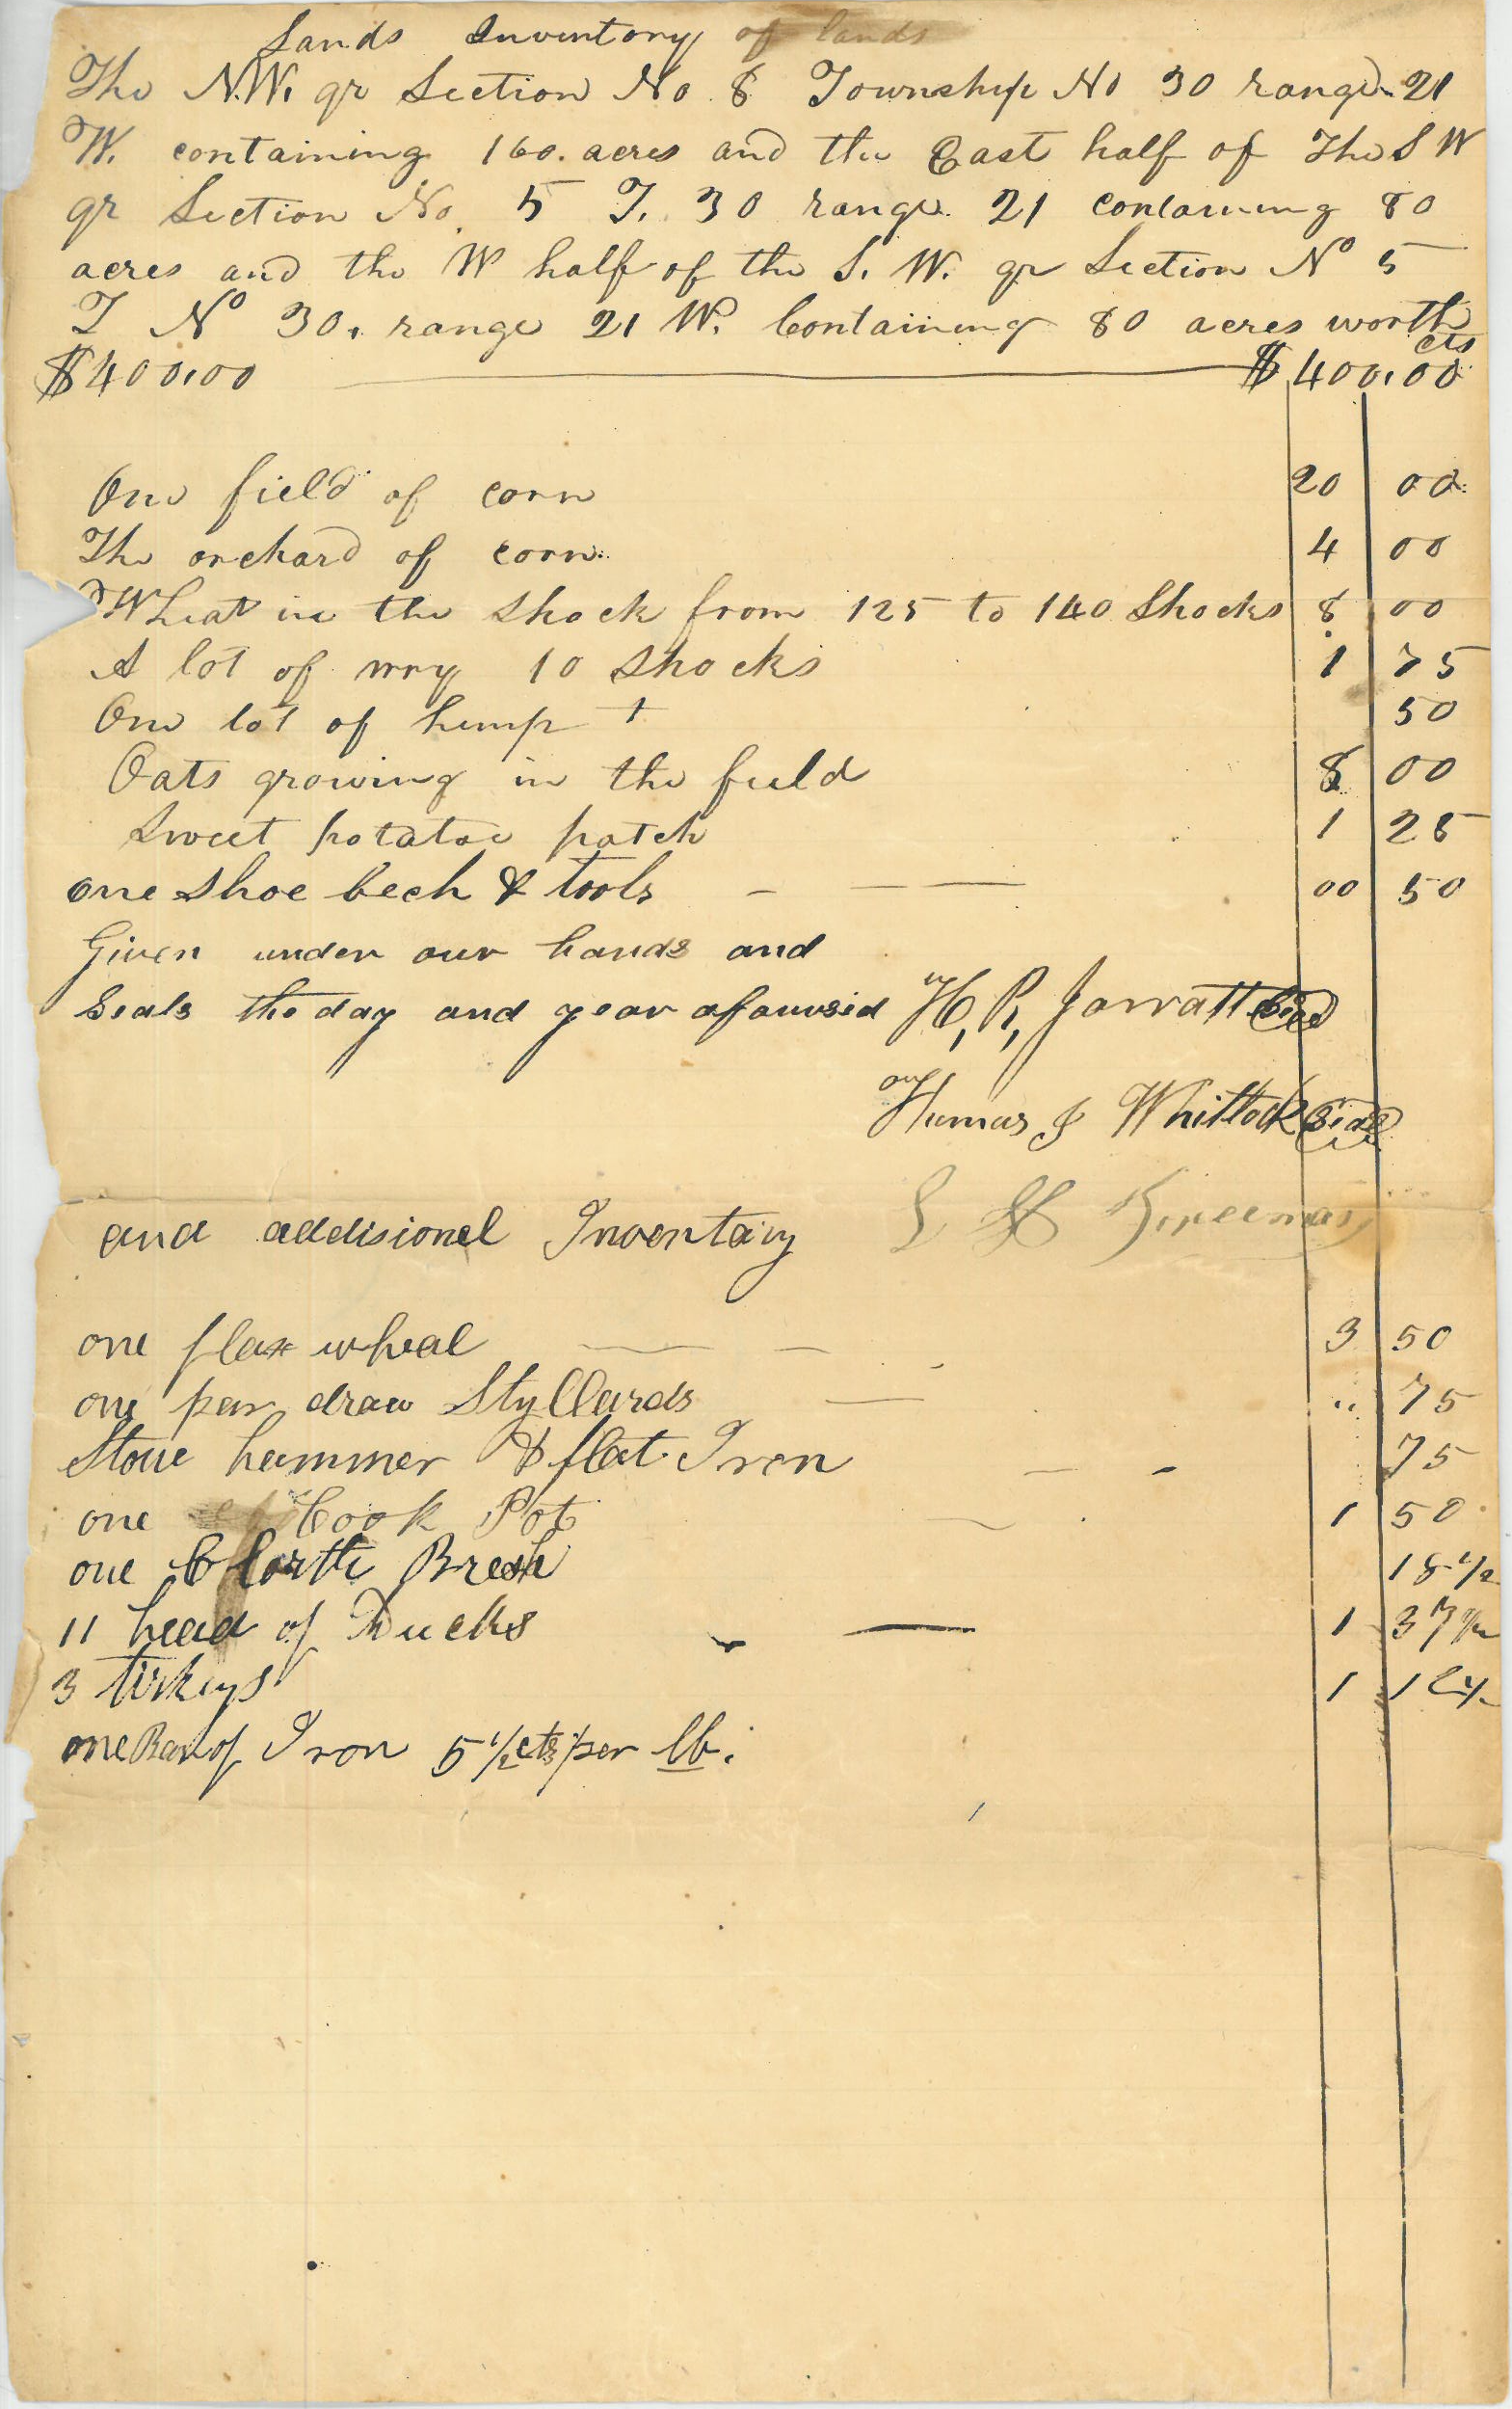 Lands Inventory of lands
The N.W. qr Section No 8 Township No 30 range 21
W. containing 160. acres and the East half of The S W
qr Section No. 5 T. 30 range 21 containing 80
acres and the W half of the S. W. qr Section No 5
T No 30. range 21 W. Containing 80 acres worth
cts
$400.00 $400.00
One field of corn 20 00
The orchard of corn 4 00
Wheat in the shock from 125 to 140 Shocks 8 00
A lot of wry 10 shocks 1 75
One lot of hemp 50
Oats growing in the field 8 00
Sweet potatoe patch 1 25
one shoe bech & tools 00 50
Given under our hands and
Seals the day and year H. R. Jarratt Seal
Thumas J Whitlock Seal
and addisional Inventary L
one flax wheal 3 50
one par draw Styllards " 75
Stone hammer & flat Iron 75
one Cook Pot 1 50
one Clorth Bresh 18 1/2
11 head of Ducks 1 37 1/2
3 tirkeys 1 12 1/2
one Bar of Iron 5 1/2 cts per lb.